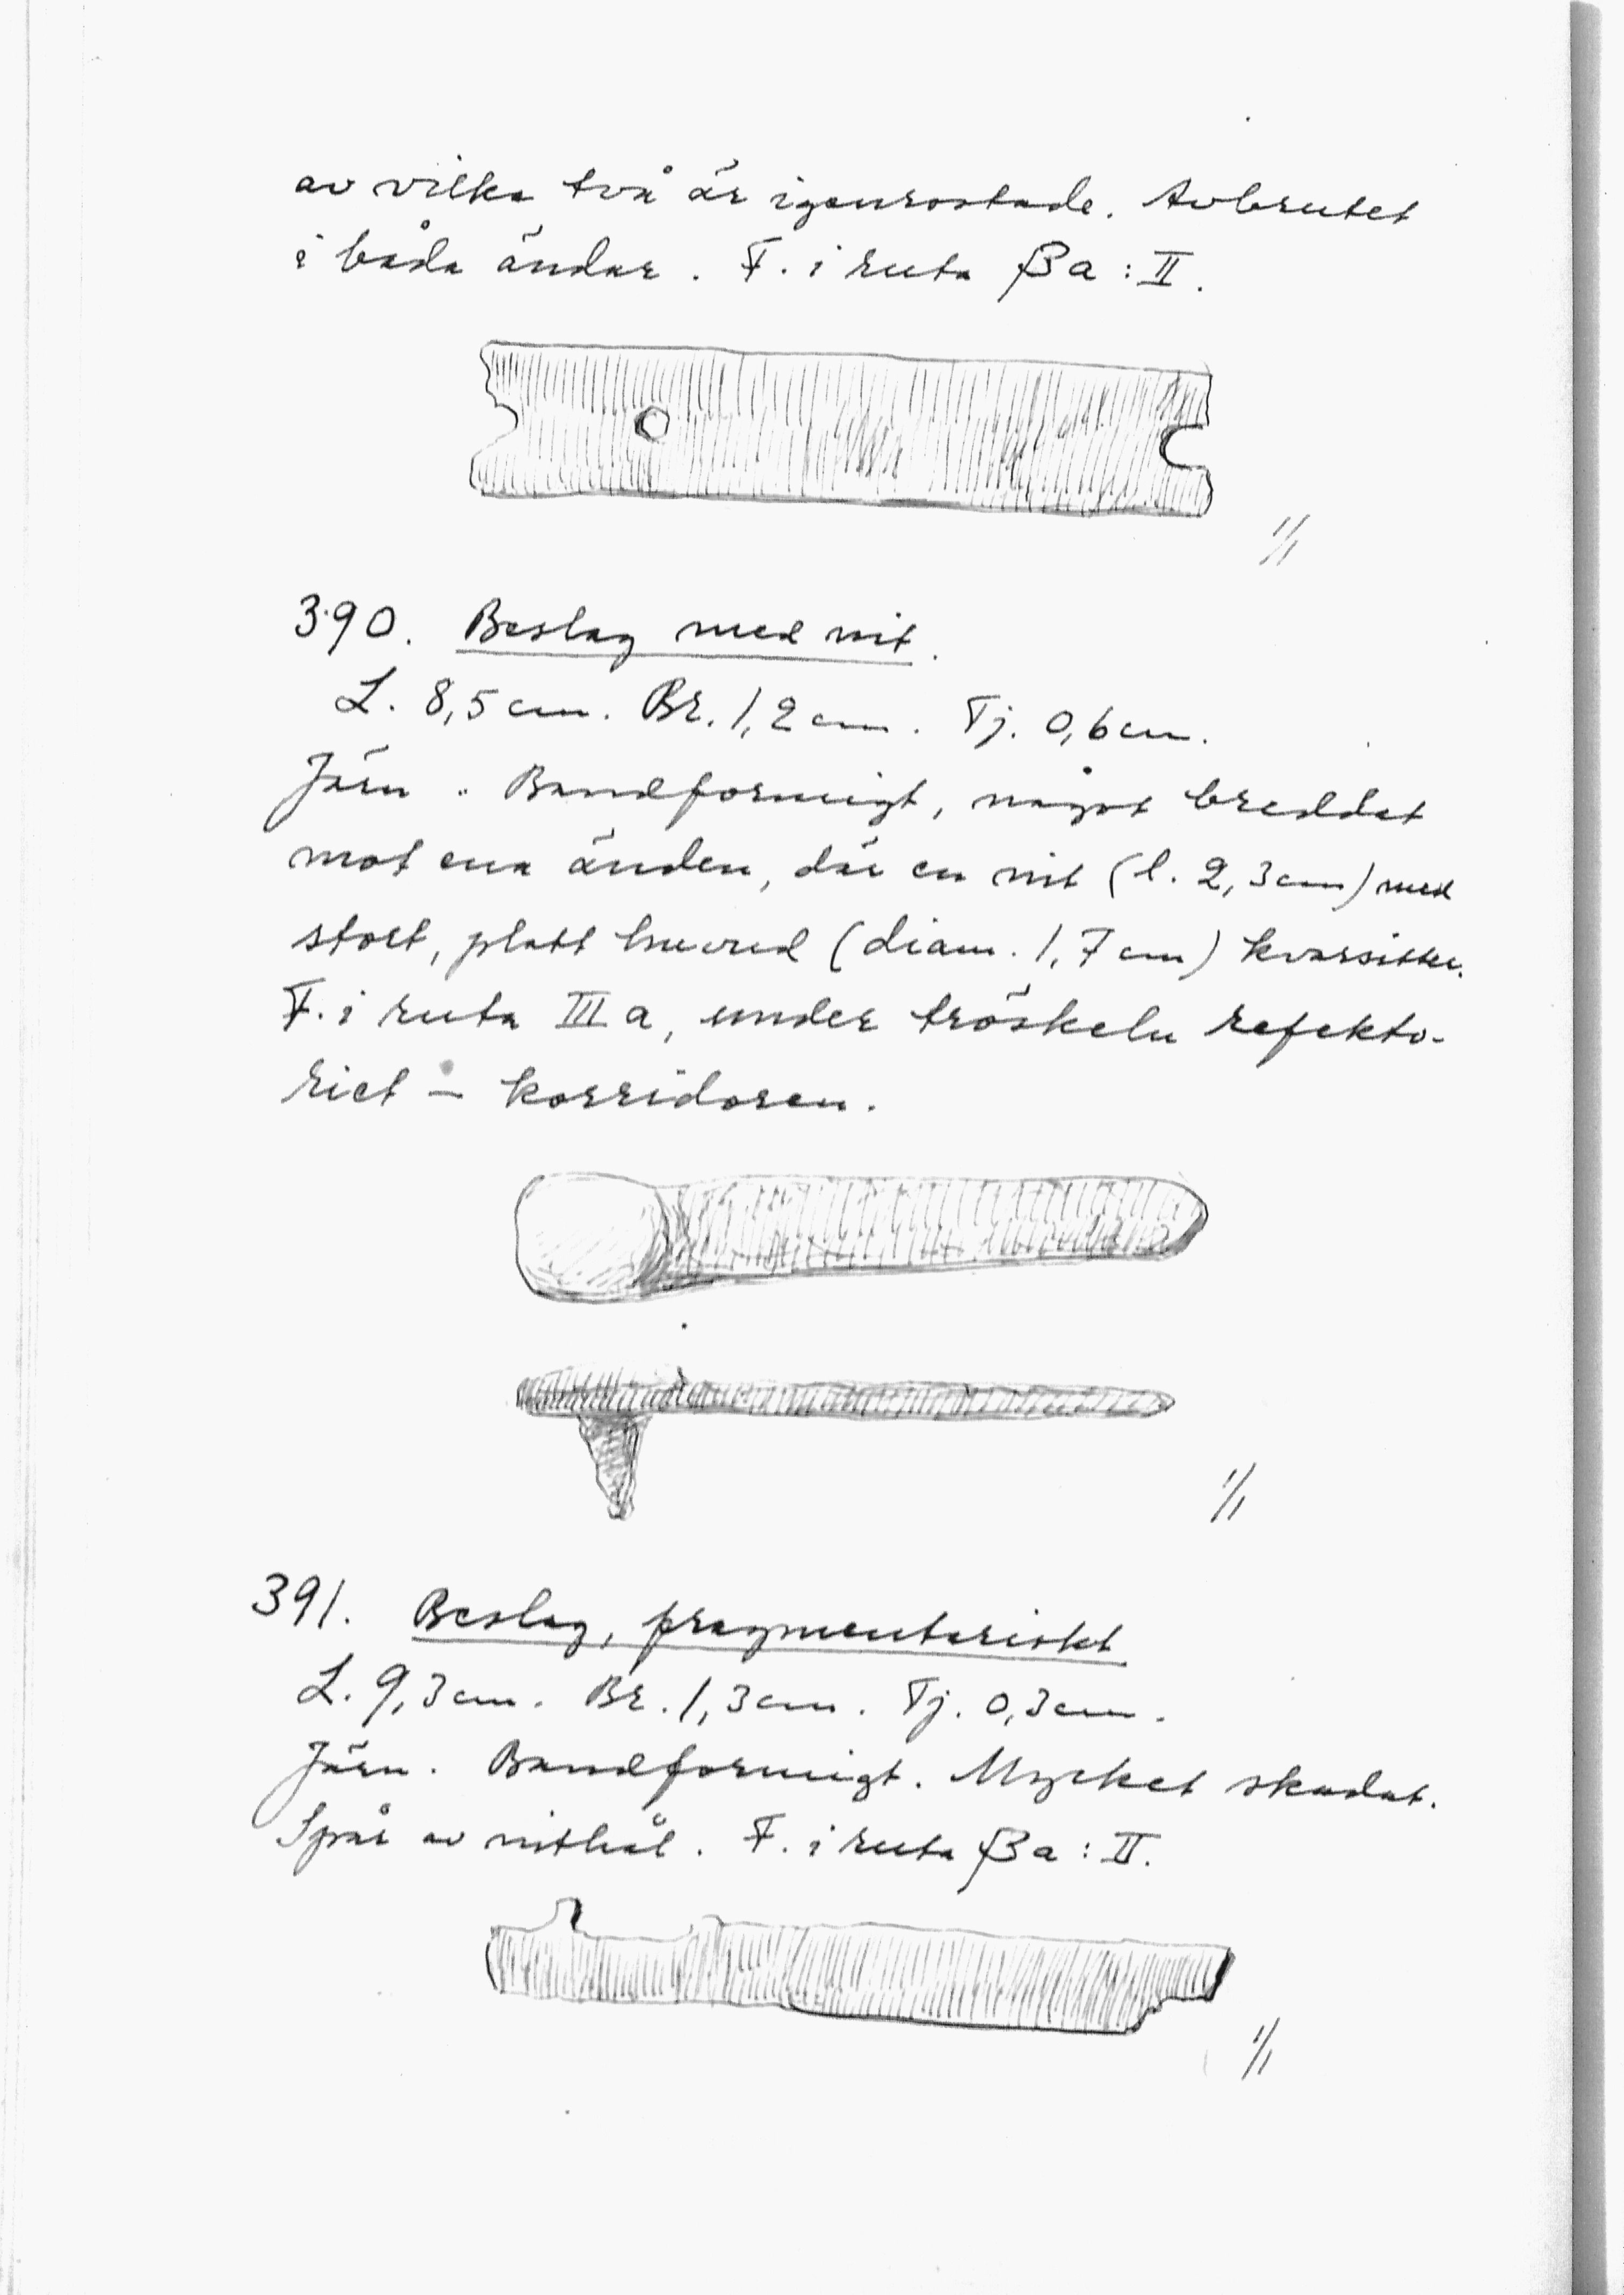 av vilka två är igenrostade. Avbrutet
i båda ändar. F. i ruta βa:II.
1/1
390. Beslag med nit.
L. 8,5 cm. Br. 1,2 cm. Tj. 0,6 cm.
Järn. Bandformigt, något breddat
mot ena änden, där en nit (l. 2,3 cm) med
stort, platt huvud (diam. 1,7 cm) kvarsitter.
F. i ruta III a, under tröskeln refekto-
riet - korridoren.
1/1
391. Beslag, fragmentariskt
L. 9,3 cm. Br. 1,3 cm. Tj. 0,3 cm.
Järn. Bandformigt. Mycket skadat.
Spår av nithål. F. i ruta βa:II.
1/1